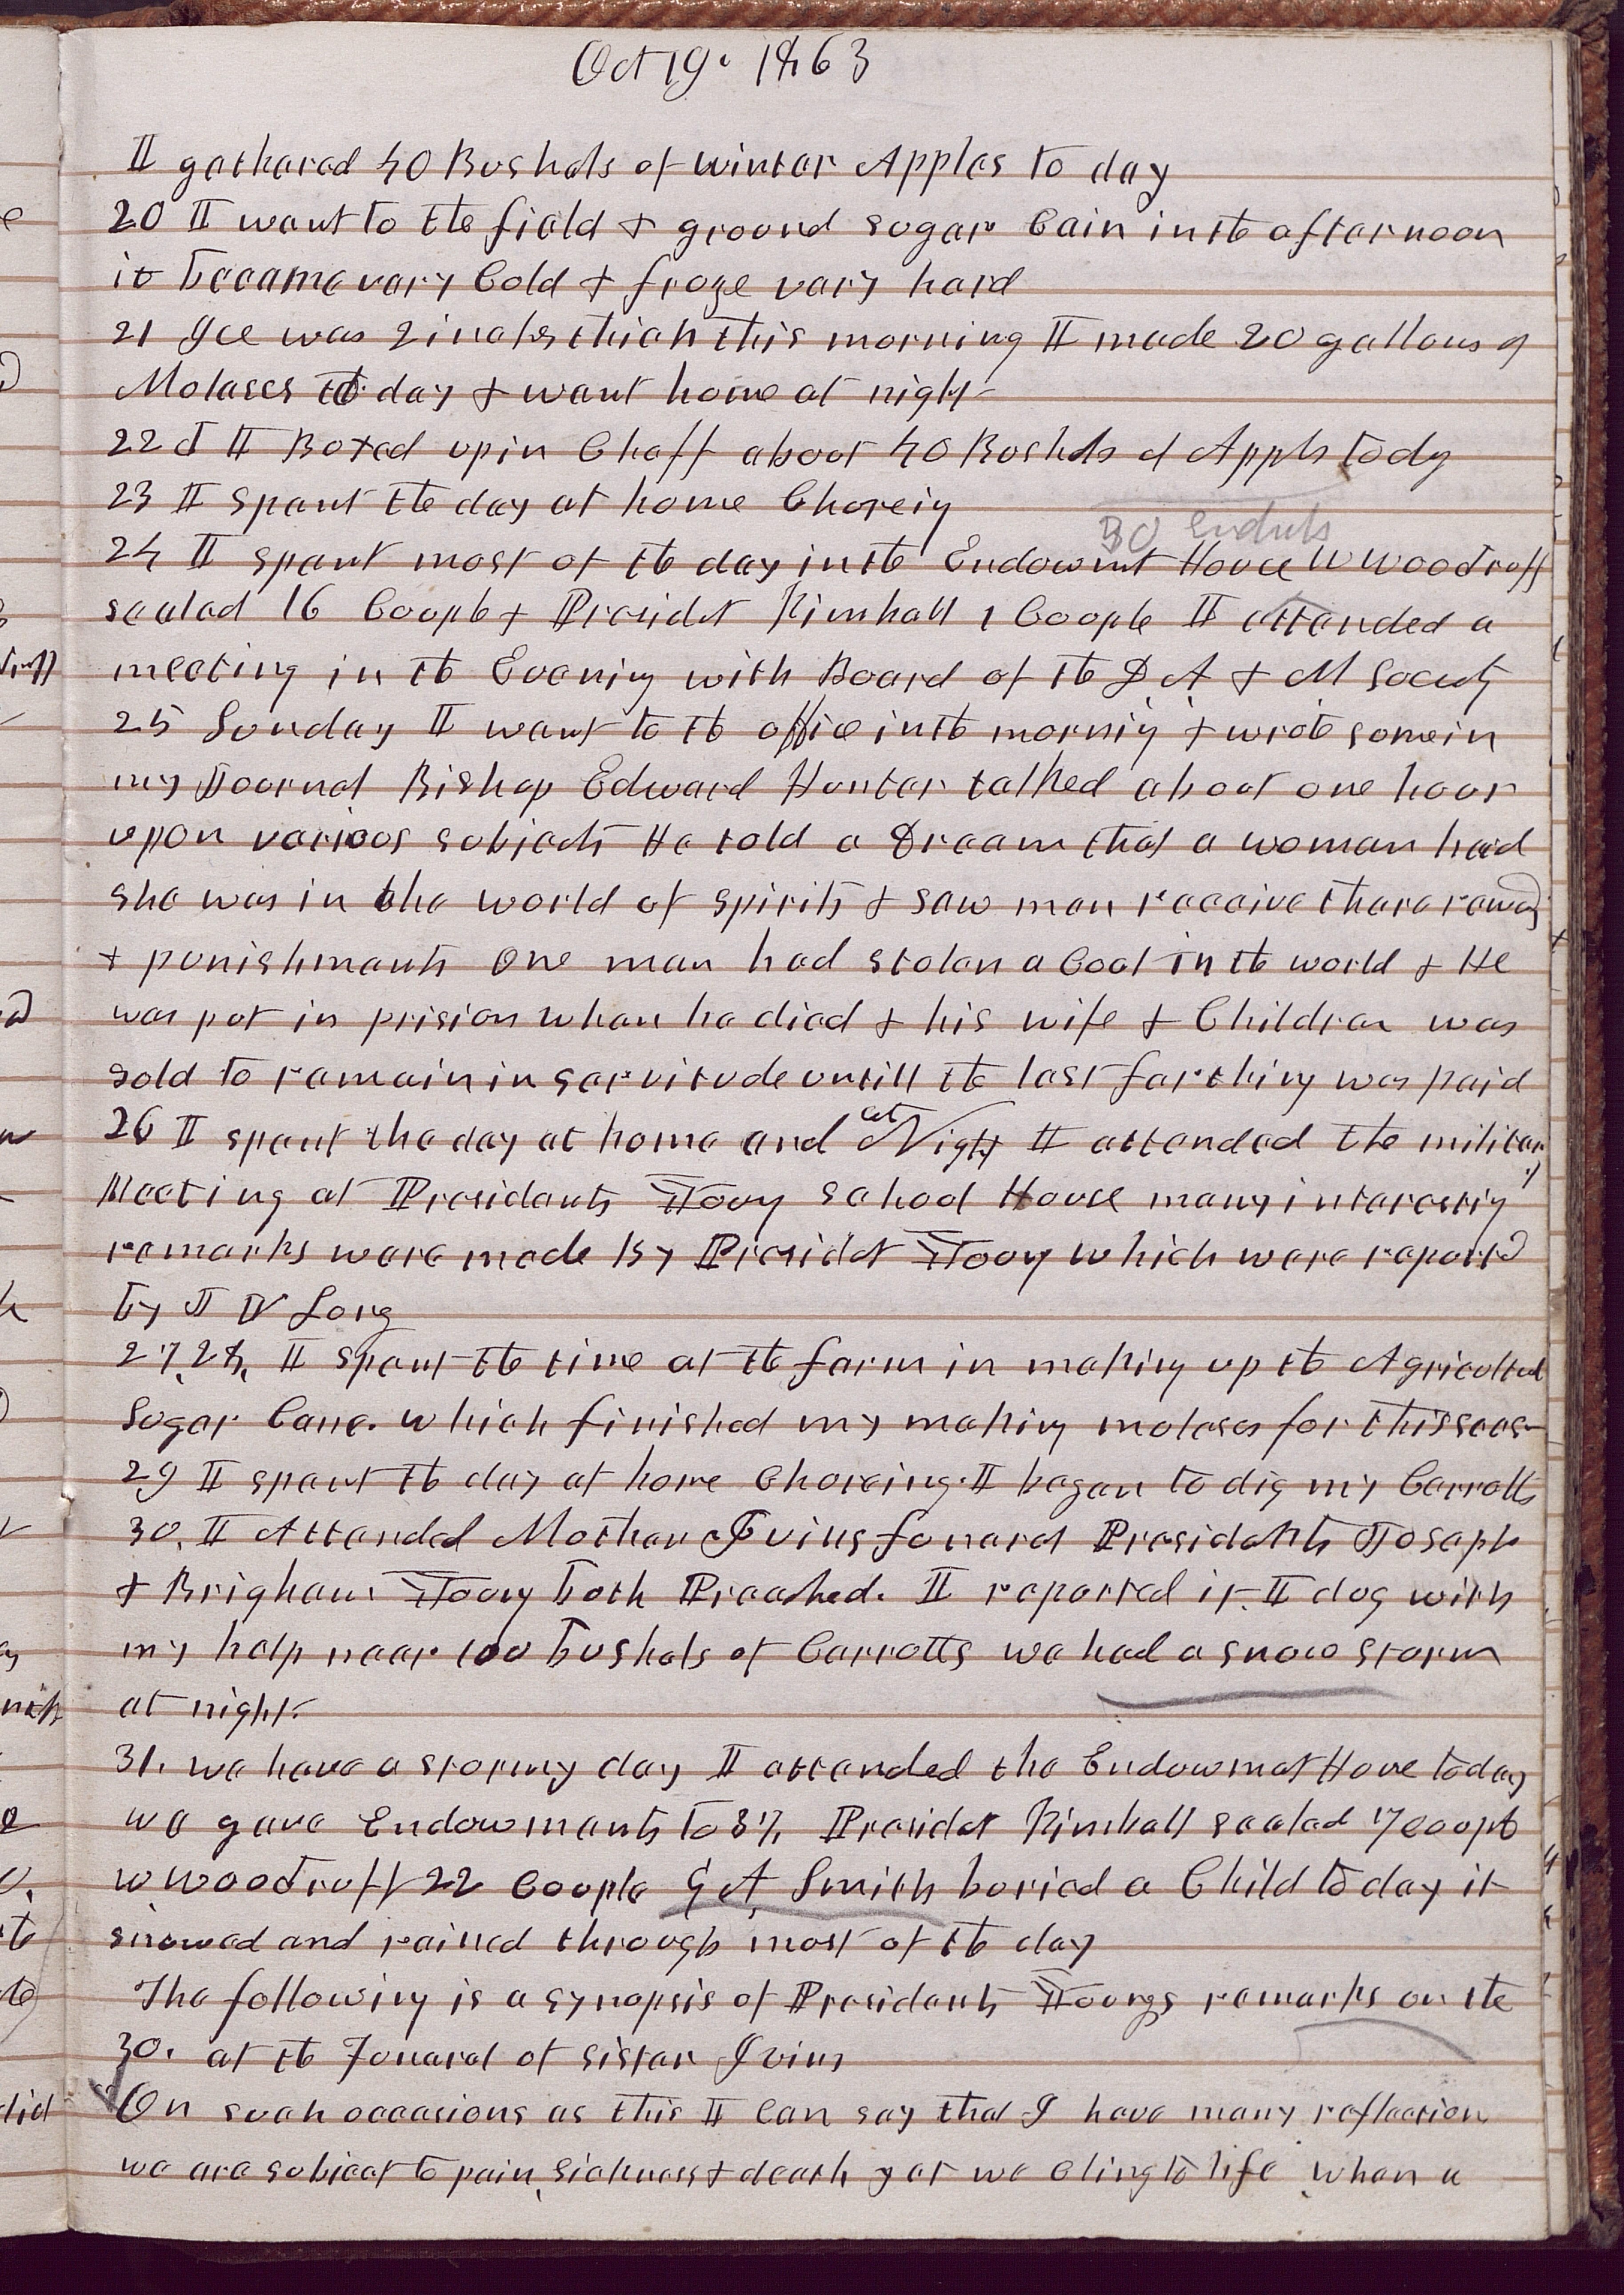 Oct 19. 1863
I gathered 40 Bushels of winter Apples to day
20 I went to the field & ground sugar Cain in the afternoon
it became very Cold & froze very hard
21 Ice was 2 inches thick this morning I made 20 gallons of
Molases to day & went home at night
22d I Boxed up in Chaff about 40 Bushels of Apples to dy
23 I spent the day at home Choreig
30 Enduts
24 I spent most of the day in the Endowmt House W Woodruff
sealed 16 Couple & Presidet Kimball 1 Couple I attended a
meeting in the Evening with Board of the D A & M Society
25 Sunday I went to the office in the mornig & wrote some in
my Journal Bishop Edward Hunter talked about one hour
upon various subjects He told a Dream that a woman had
she was in the world of spirits & saw men receive there reward
& punishments One man had stolen a Coat in the world & He
was put in prision when he died & his wife & Children was
sold to remain in servitude untill the last farthing was paid
26 I spent the day at home and at Night I attended the military
Meeting at Presidents Young School House many interestig
remarks were made by Presidet Young which were reported
by J V Long
27, 28, I spent the time at the farm in making up the Agricultul
Sugar Cane. which finished my making molases for this seas-
29 I spent the day at home Choreing. I began to dig my Carrotts
30. I Attended Mother Ivins funeral Presidents Joseph
& Brigham Young both Preached. I reported it. I dug with
my help near 100 bushels of Carrotts we had a snow storm
at night.
31. we have a stormy day I attended the Endowmet House to day
we gave Endowments to 37, Presidet Kimball sealed 7 coople
W Woodruff 22 Couple G A Smith buried a Child to day it
snowed and rained through most of the day
The following is a synopsis of Presidents Youngs remarks on the
30. at the Funeral of sister Ivins
On such occasions as this I Can say that I have many reflection
we are subject to pain, sickness & death yet we cling to life, when a